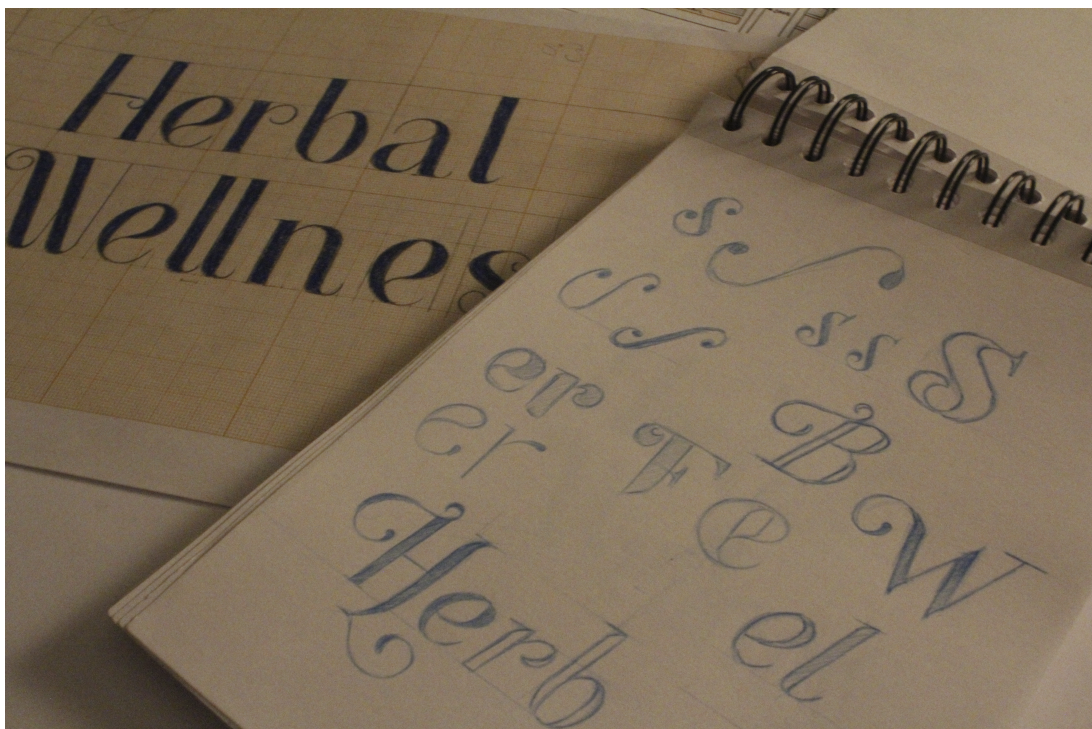 Herbal
Wellnes
s
S
s s S
S S
er
er
F
B
e
W
Herb
el